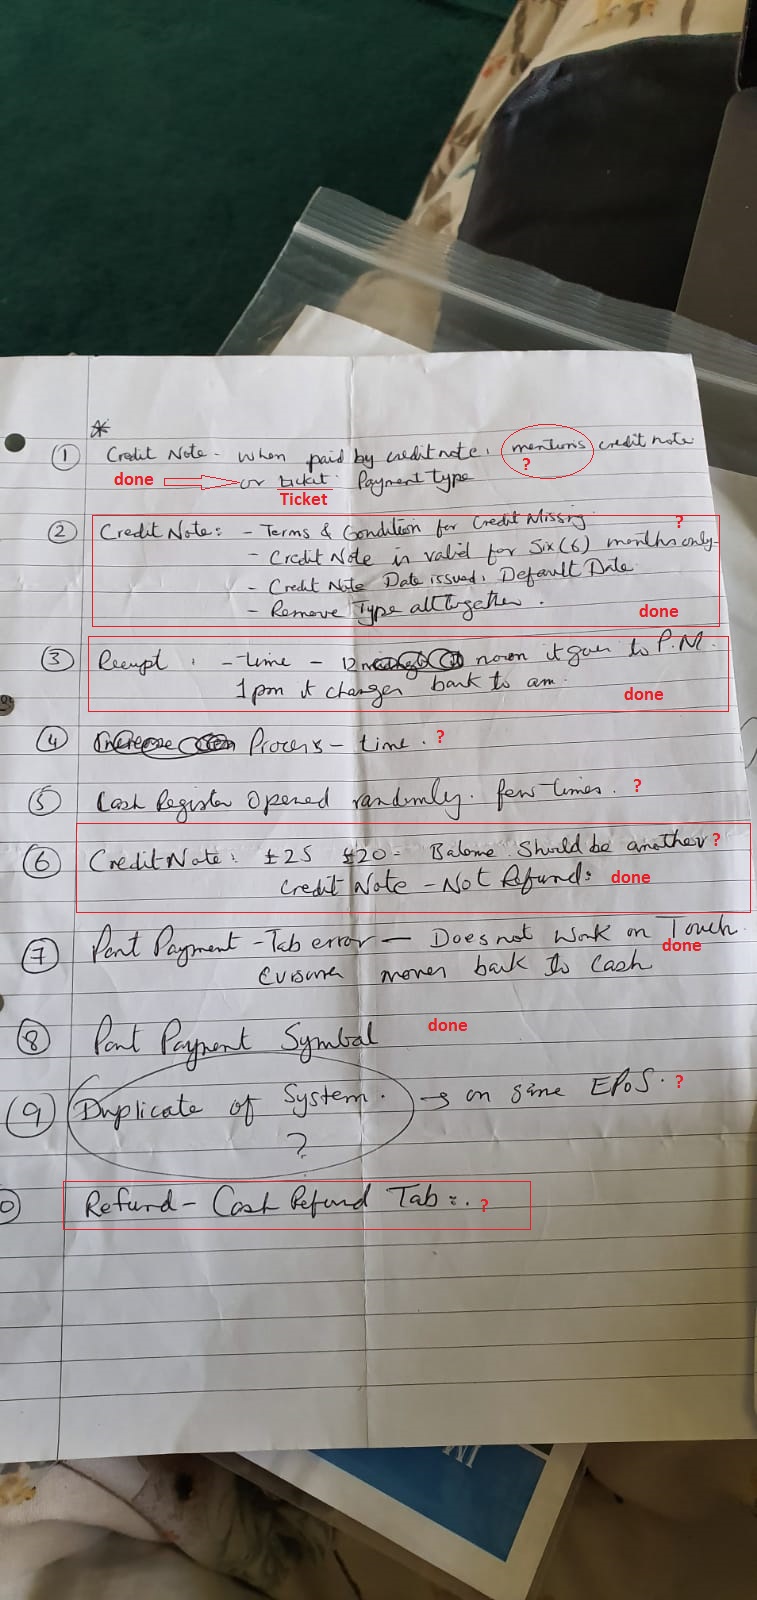 *
① Credit Note - when paid by credit note, mentions credit note
?
done or ticket. Payment type
Ticket
② Credit Note: - Terms & Condition for Credit Missing. ?
- Credit Note is valid for Six (6) months only
- Credit Note Date issued, Default Date
- Remove Type alltogether. done
③ Receipt, - time - 12 noon it goes to P.M.
1pm it changes back to am. done
④ Process - time. ?
⑤ Cash Register Opened randomly. few times. ?
⑥ Credit Note: £25 £20 - Balance Should be another ?
Credit Note - Not Refund: done
⑦ Part Payment - Tab error - Does not work on Touch.
done
moves back to Cash
⑧ Part Payment Symbal done
⑨ Duplicate of System. → on same EPoS. ?
?
0 Refund - Cash Refund Tab :. ?